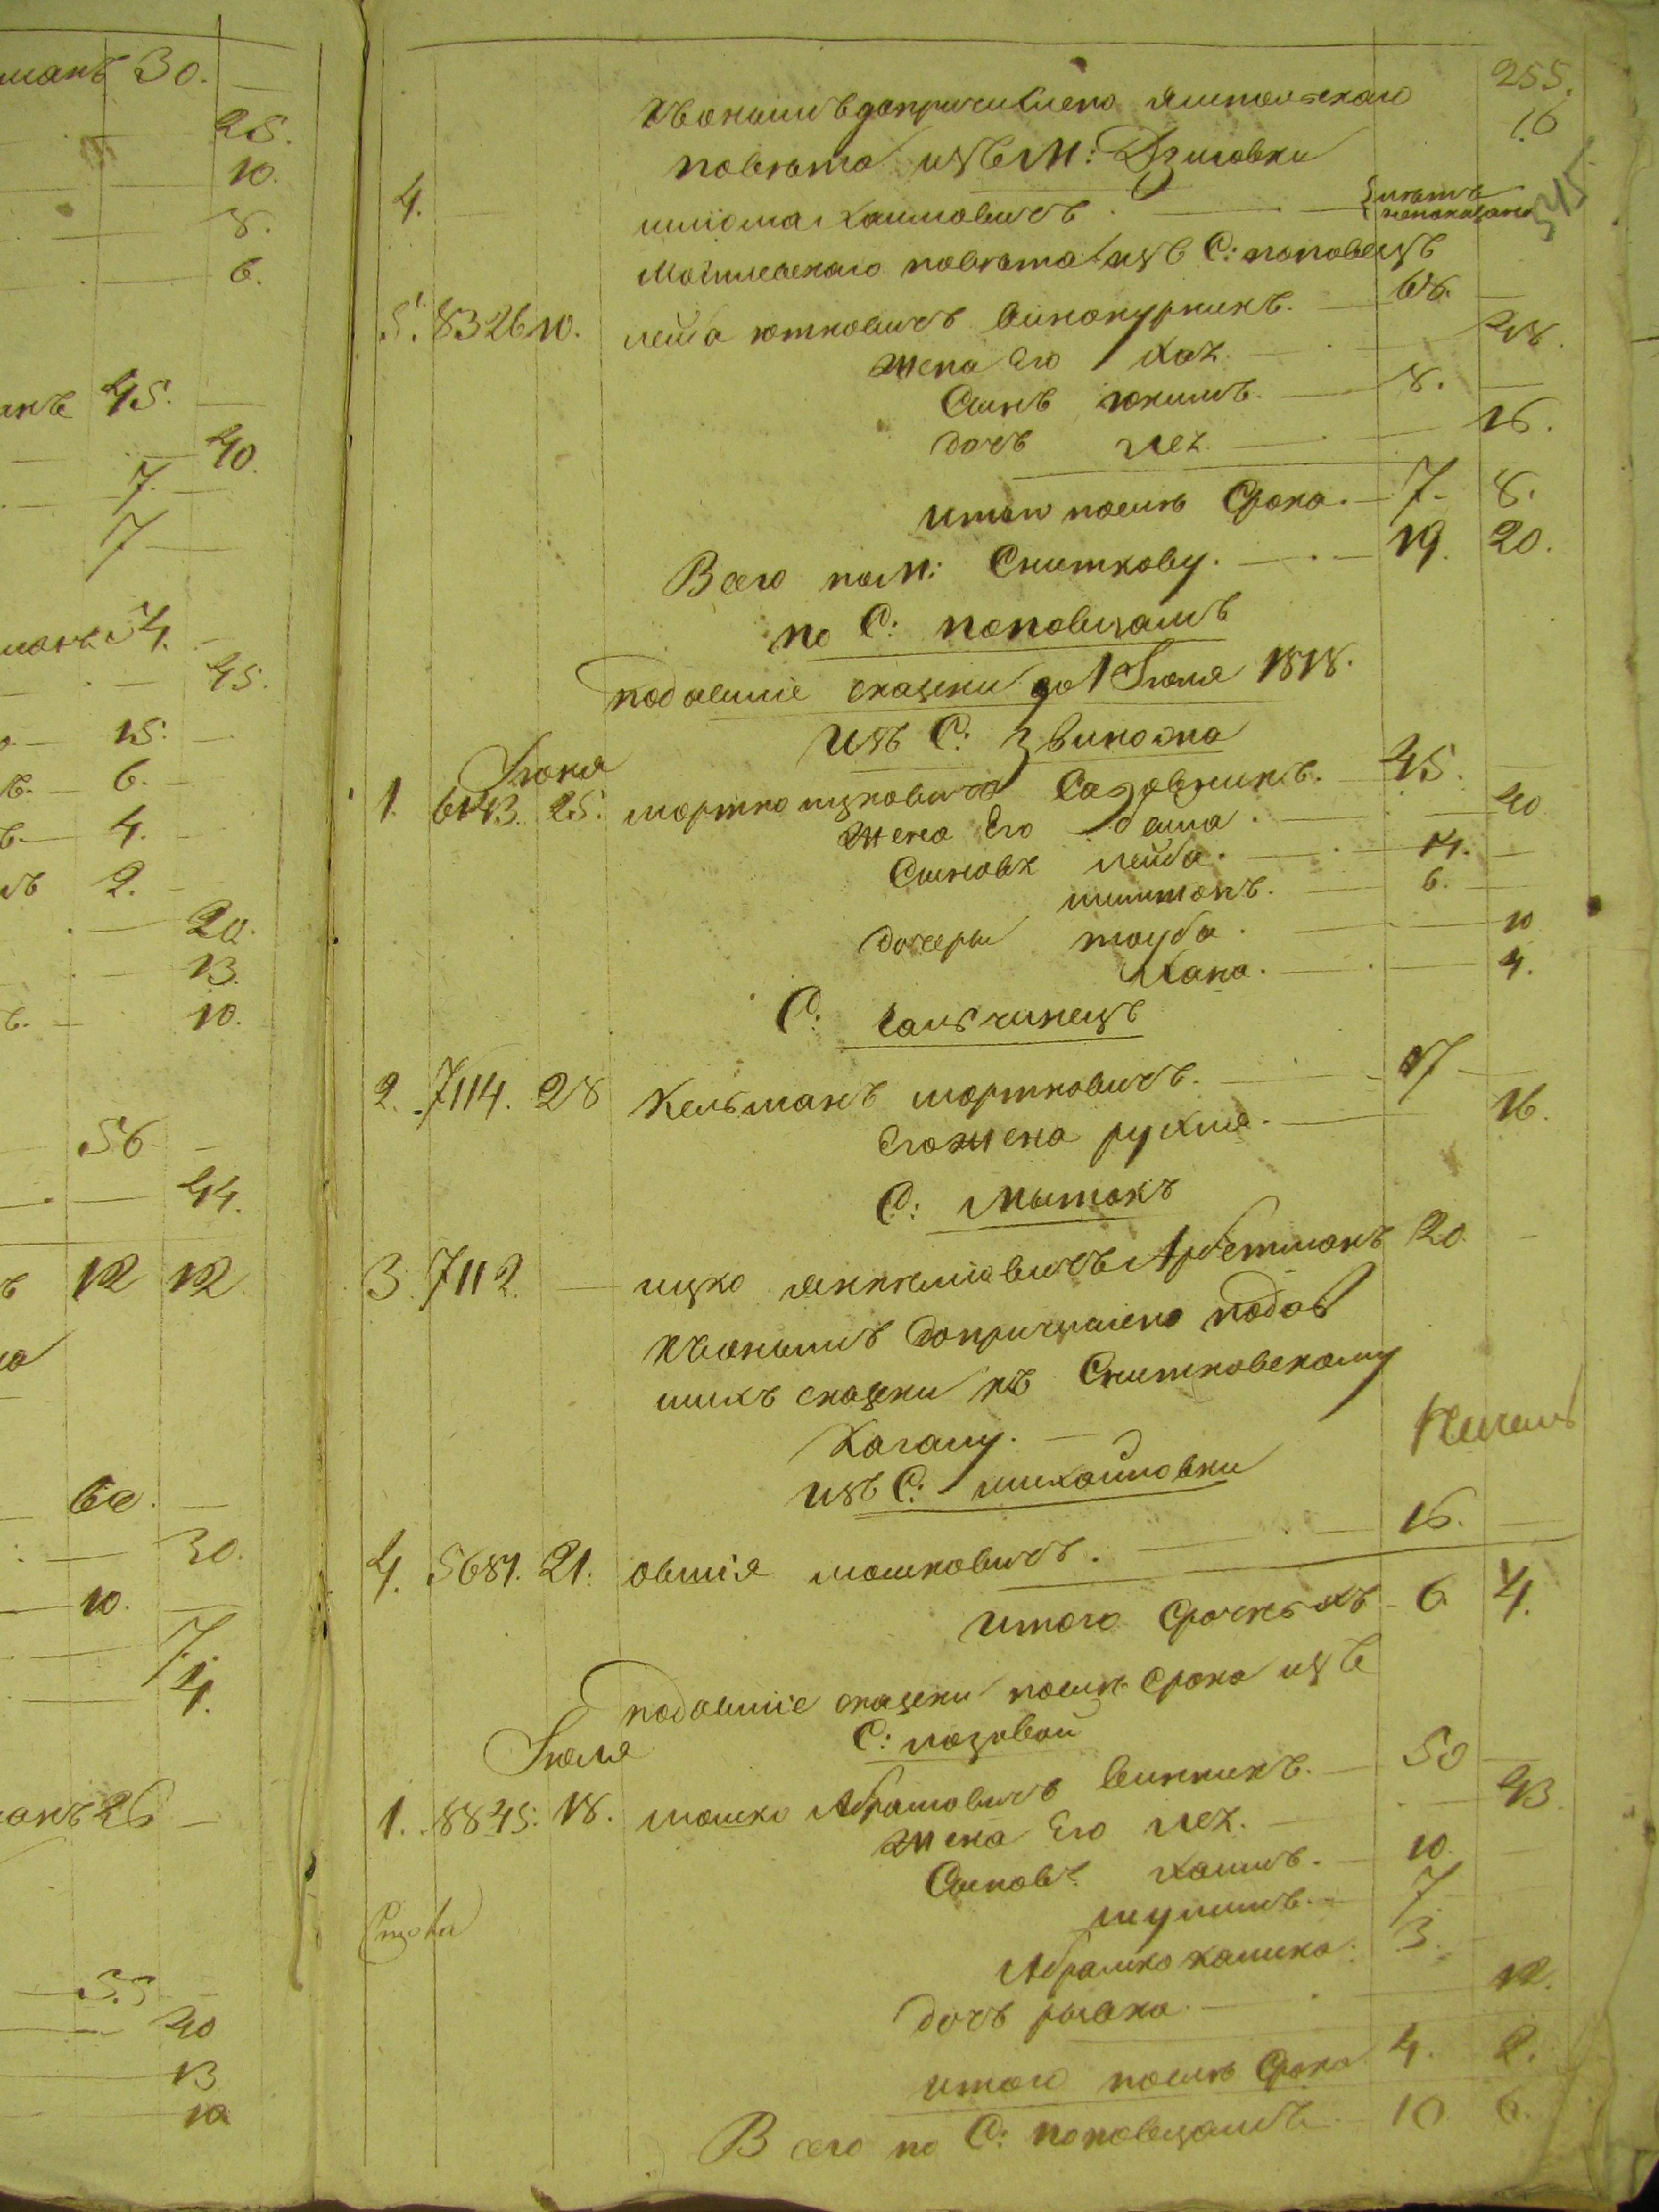 манъ 30.
25.
10.
8.
6.
45.
40.
7.
7
54.
45.
15.
6.
4.
2.
20.
13.
10.
56
44.
12 12
60.
30.
10.
7.
4.
26
40
13
10
255.
16
345
К онымъ допричислено Ямпольскаго
повѣта изъ М: Дзиговки
4. шліома Хаимовичъ. лѣтъ непоказано
Могилевскаго повѣта изъ С: поповецъ
5. 8326 10. лейба ютковичъ винокурникъ. 68.
жена Его Хая. 28.
Сынъ юкимъ. 8.
дочь лея. 16.
итого послѣ Срока. 7. 8.
Всего по М: Сниткову. 19. 20.
по С: поповцамъ
подавшіе сказки до 1 Іюля 1818.
Изъ С: Звиногна
Іюня
1. 6143. 25. мортко ицковичъ Садовникъ. 45.
жена Его бейла. 40
Сыновя лейба. 14.
6.
дочеры тауба. 10
Хана. 4.
С: Гальчинецъ
2. 7114. 28 Кельманъ мортковичъ. 17
Его жена рухля. 16.
С: Мытокъ
3. 7112. ицко янкелювичъ Арбетманъ 20.
К онымъ допричислено подав
шихъ сказки къ Снитковскому
Кагалу.
изъ С: михайловки
4. 5681. 21. овшія мошковичъ. 16.
итого Срочныхъ 6 4.
подавшіе сказки послѣ Срока изъ
С: лозовой
Іюля
1. 8845. 18. мошко Абрамовичъ винникъ. 50
жена Его лея. 43.
Сыновя. Хаимъ. 10.
7
Абрамко 3.
дочь 12.
итого послѣ Срока 4. 2.
Всего по С: поповецамъ 10 6.